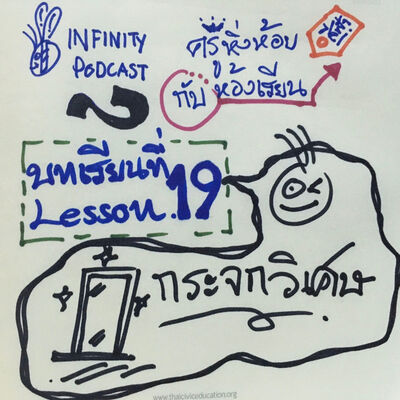 INFINITY
PODCAST
ครูหิ่งห้อย
กับ ห้องเรียน
บทเรียนที่
Lesson. 19
กระจกวิเศษ
www.thaiciviceducation.org